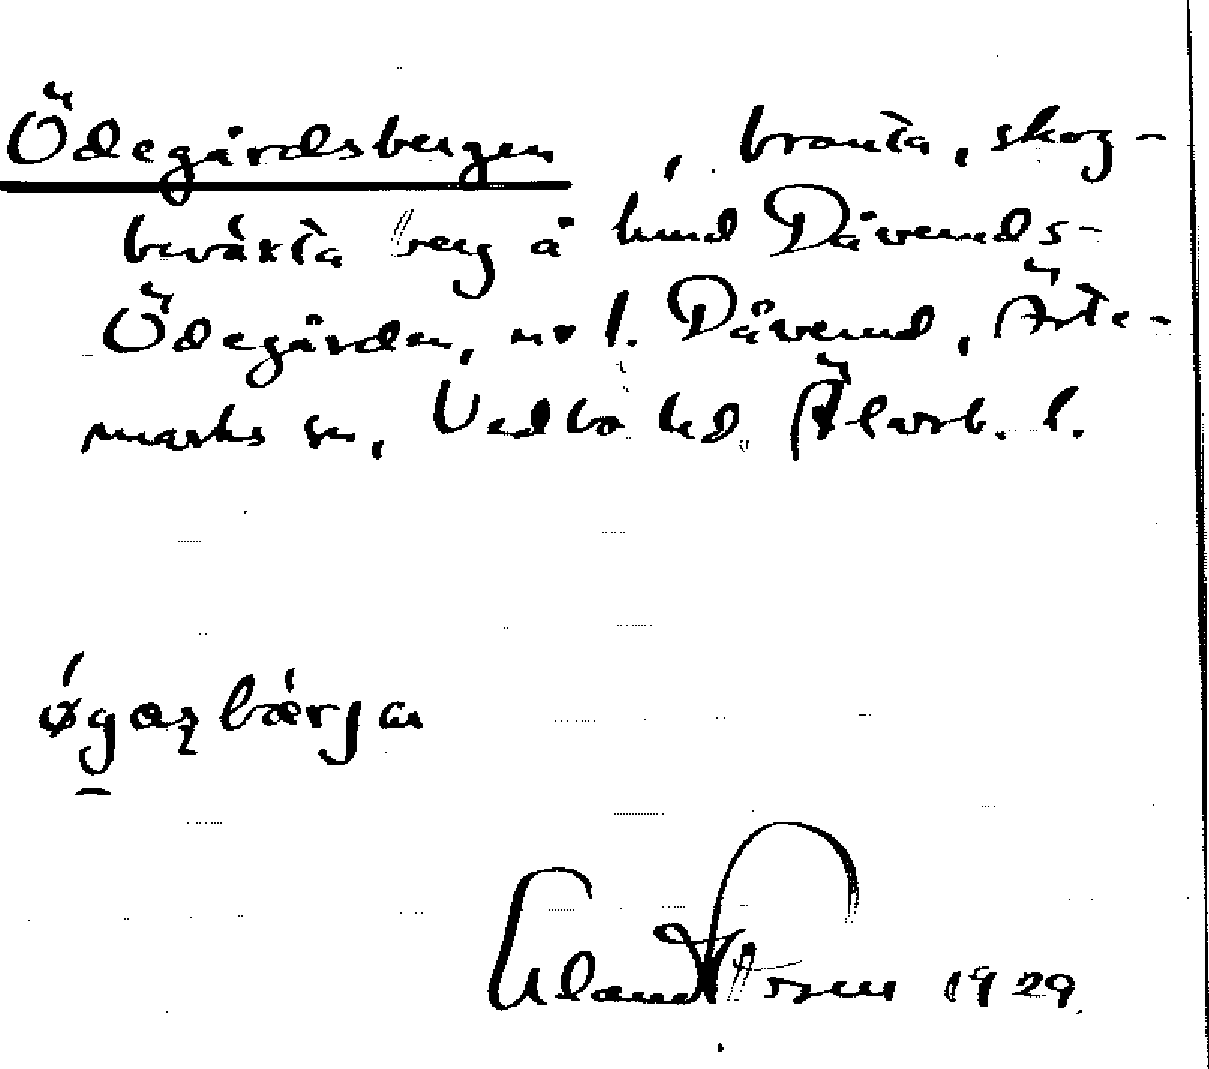 Ödegårdsbergen, branta, skog-
beväxta berg å hmd Dåverud s-
Ödegården, nr 1. Dåverud, Ärte-
marks sn, Vedbo hd. Älvsb. l.
øgaʂbærjan
Rosén 1929